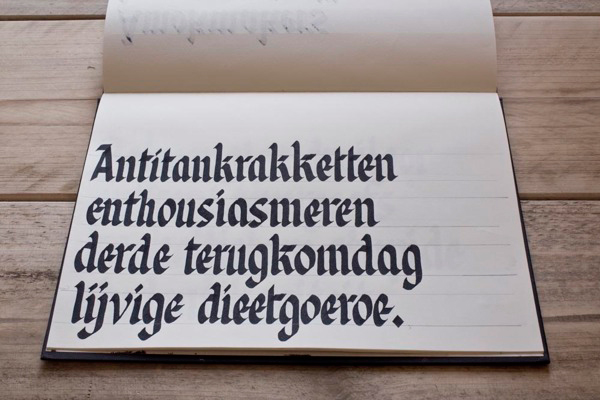 Antitankrakketten
enthousiasmeren
derde terugkomdag
lijvige dieetgoeroe.